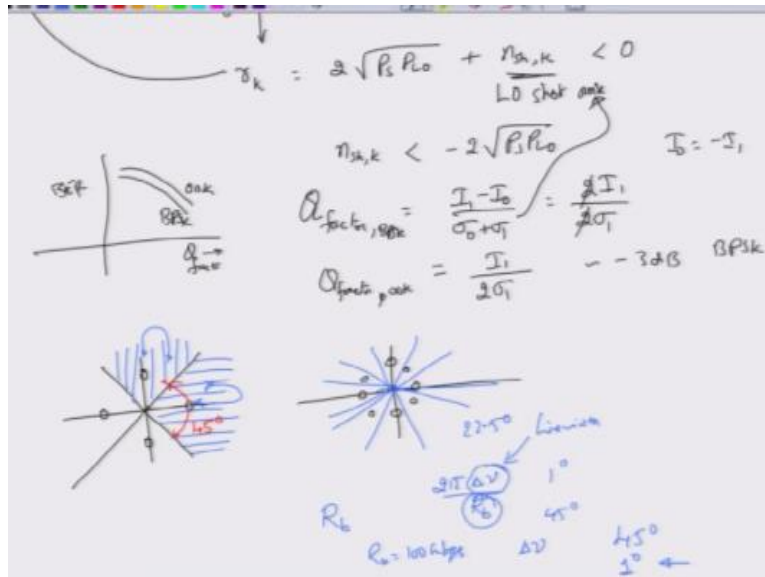 r_k = 2√P_S P_LO + n_sh,k < 0
LO shot
n_sh,k < -2√P_S P_LO    I_0 = -I_1
BER
OOK
BPSK
Q factor, BPSK = (I_1 - I_0)/(σ_0 + σ_1) = 2I_1/2σ_1
Q factor, OOK = I_1/2σ_1 ~ -3dB BPSK
45°
22.5°
Linewidth
2πΔν/R_b
1°
45°
R_b
R_b = 100 Gbps    Δν    45°
1° ←